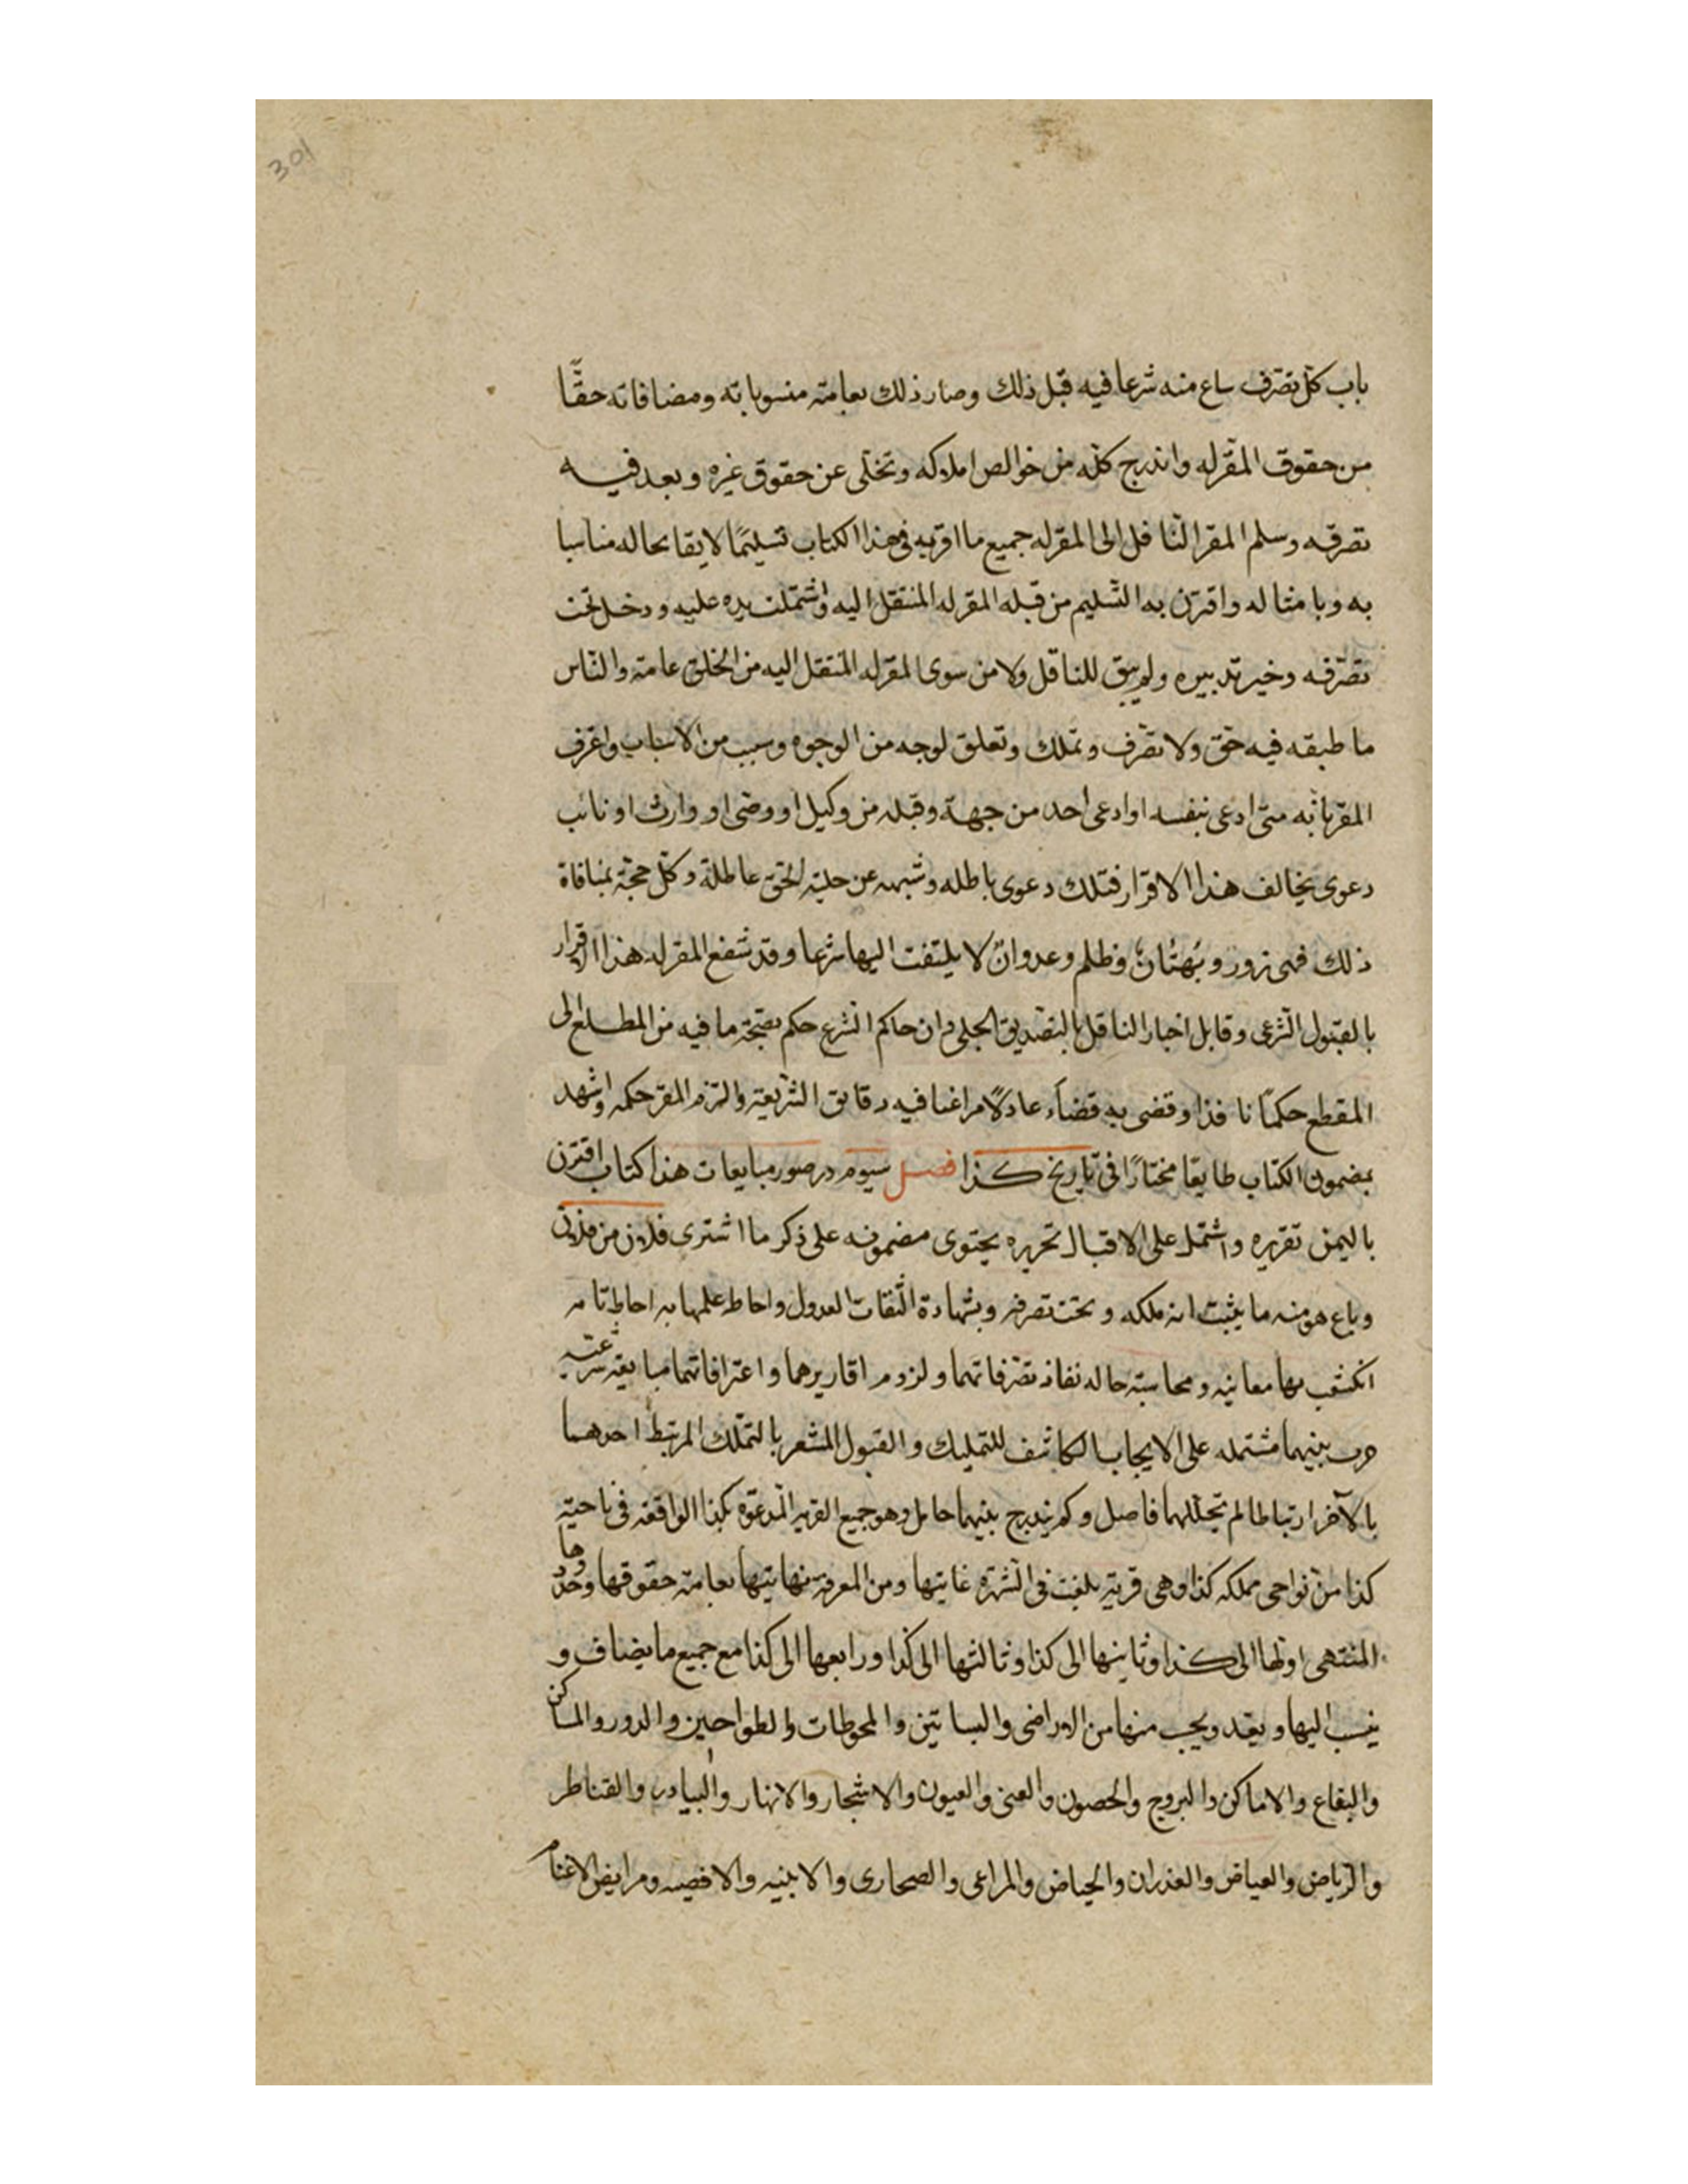 301
باب كل تصرف ساع منه شرعا فيه قبل ذلك وصار ذلك بعامة منسوباته ومضافاته حقّا
من حقوق المقرله واندرج كله من خوالص املاكه وتخلى عن حقوق غيره وبعد فيه
تصرفه وسلم المقر الناقل الى المقرله جميع ما اقر به فى هذا الكتاب تسليمًا لايقا بحاله مناسبا
به وبامثاله واقترن به التسليم من قبله المقرله المنتقل اليه واشتملت يده عليه ودخل تحت
تصرفه وخير تدبيره ولم يبق للناقل ولا من سوى المقرله المنتقل اليه من الخلق عامة والناس
ما طبقه فيه حق ولا تصرف وتملك وتعلق لوجه من الوجوه وسبب من الاسباب واعترف
المقر بانه متى ادعى بنفسه او ادعى احد من جهة وقبله من وكيل او وصى او وارث او نائب
دعوى يخالف هذا الاقرار فتلك دعوى باطله وشبهه عن حلية الحق عاطلة وكل حجة بمنافاة
ذلك فهى زور وبهتان وظلم وعدوان لا يلتفت اليها شرعا وقد شفع المقرله هذا الاقرار
بالقبول الشرعى وقابل اخبار الناقل بالتصديق الجلى وان حاكم الشرع حكم بصحة ما فيه من المطلع الى
المقطع حكمًا نافذا وقضى به قضاء عادلًا مراعيا فيه دقايق الشريعة والتزم المقر حكمه واشهد
بمضمون الكتاب طايعا مختارًا فى تاريخ كذا فصل سيوم در صور مبايعات هذا كتاب اقترن
باليمن تقريره واشتمل على الاقبال تحريره يحتوى مضمونه على ذكر ما اشترى فلان من فلان
وباع هو منه ما يثبت انه ملكه وتحت تصرفه وبشهادة الثقات العدول واحاط علمها به احاطه تامه
انكشف بها معانيه ومحاسبته حاله نفاذ تصرفاتهما ولزوم اقاريرهما واعترافاتهما مبايعة شرعيه
جرت بينهما مشتمله على الايجاب الكاشف للتمليك والقبول المشعر بالتملك المرتبط احدهما
بالآخر ارتباطا لم يتخللهما فاصل وكم يندرج بينهما حايل وهو جميع القريه المدعوة بكذا الواقعه فى ناحية
كذا من نواحى مملكه كذا وهى قرية بلغت فى الشهرة غايتها ومن المعرفة نهايتها بعامة حقوقها وحدودها
المنتهى اولها الى كذا وثانيها الى كذا وثالثها الى كذا ورابعها الى كذا مع جميع ما يضاف و
ينسب اليها ويعد ويحسب منها من الاراضى والبساتين والمحوطات والطواحين والدور والمساكن
والبقاع والاماكن والبروج والحصون والعنى والعيون والاشجار والانهار والبيادر والقناطر
والرياض والغياض والغدران والحياض والمراعى والصحارى والابنيه والافضيه ومرابض الاغنام